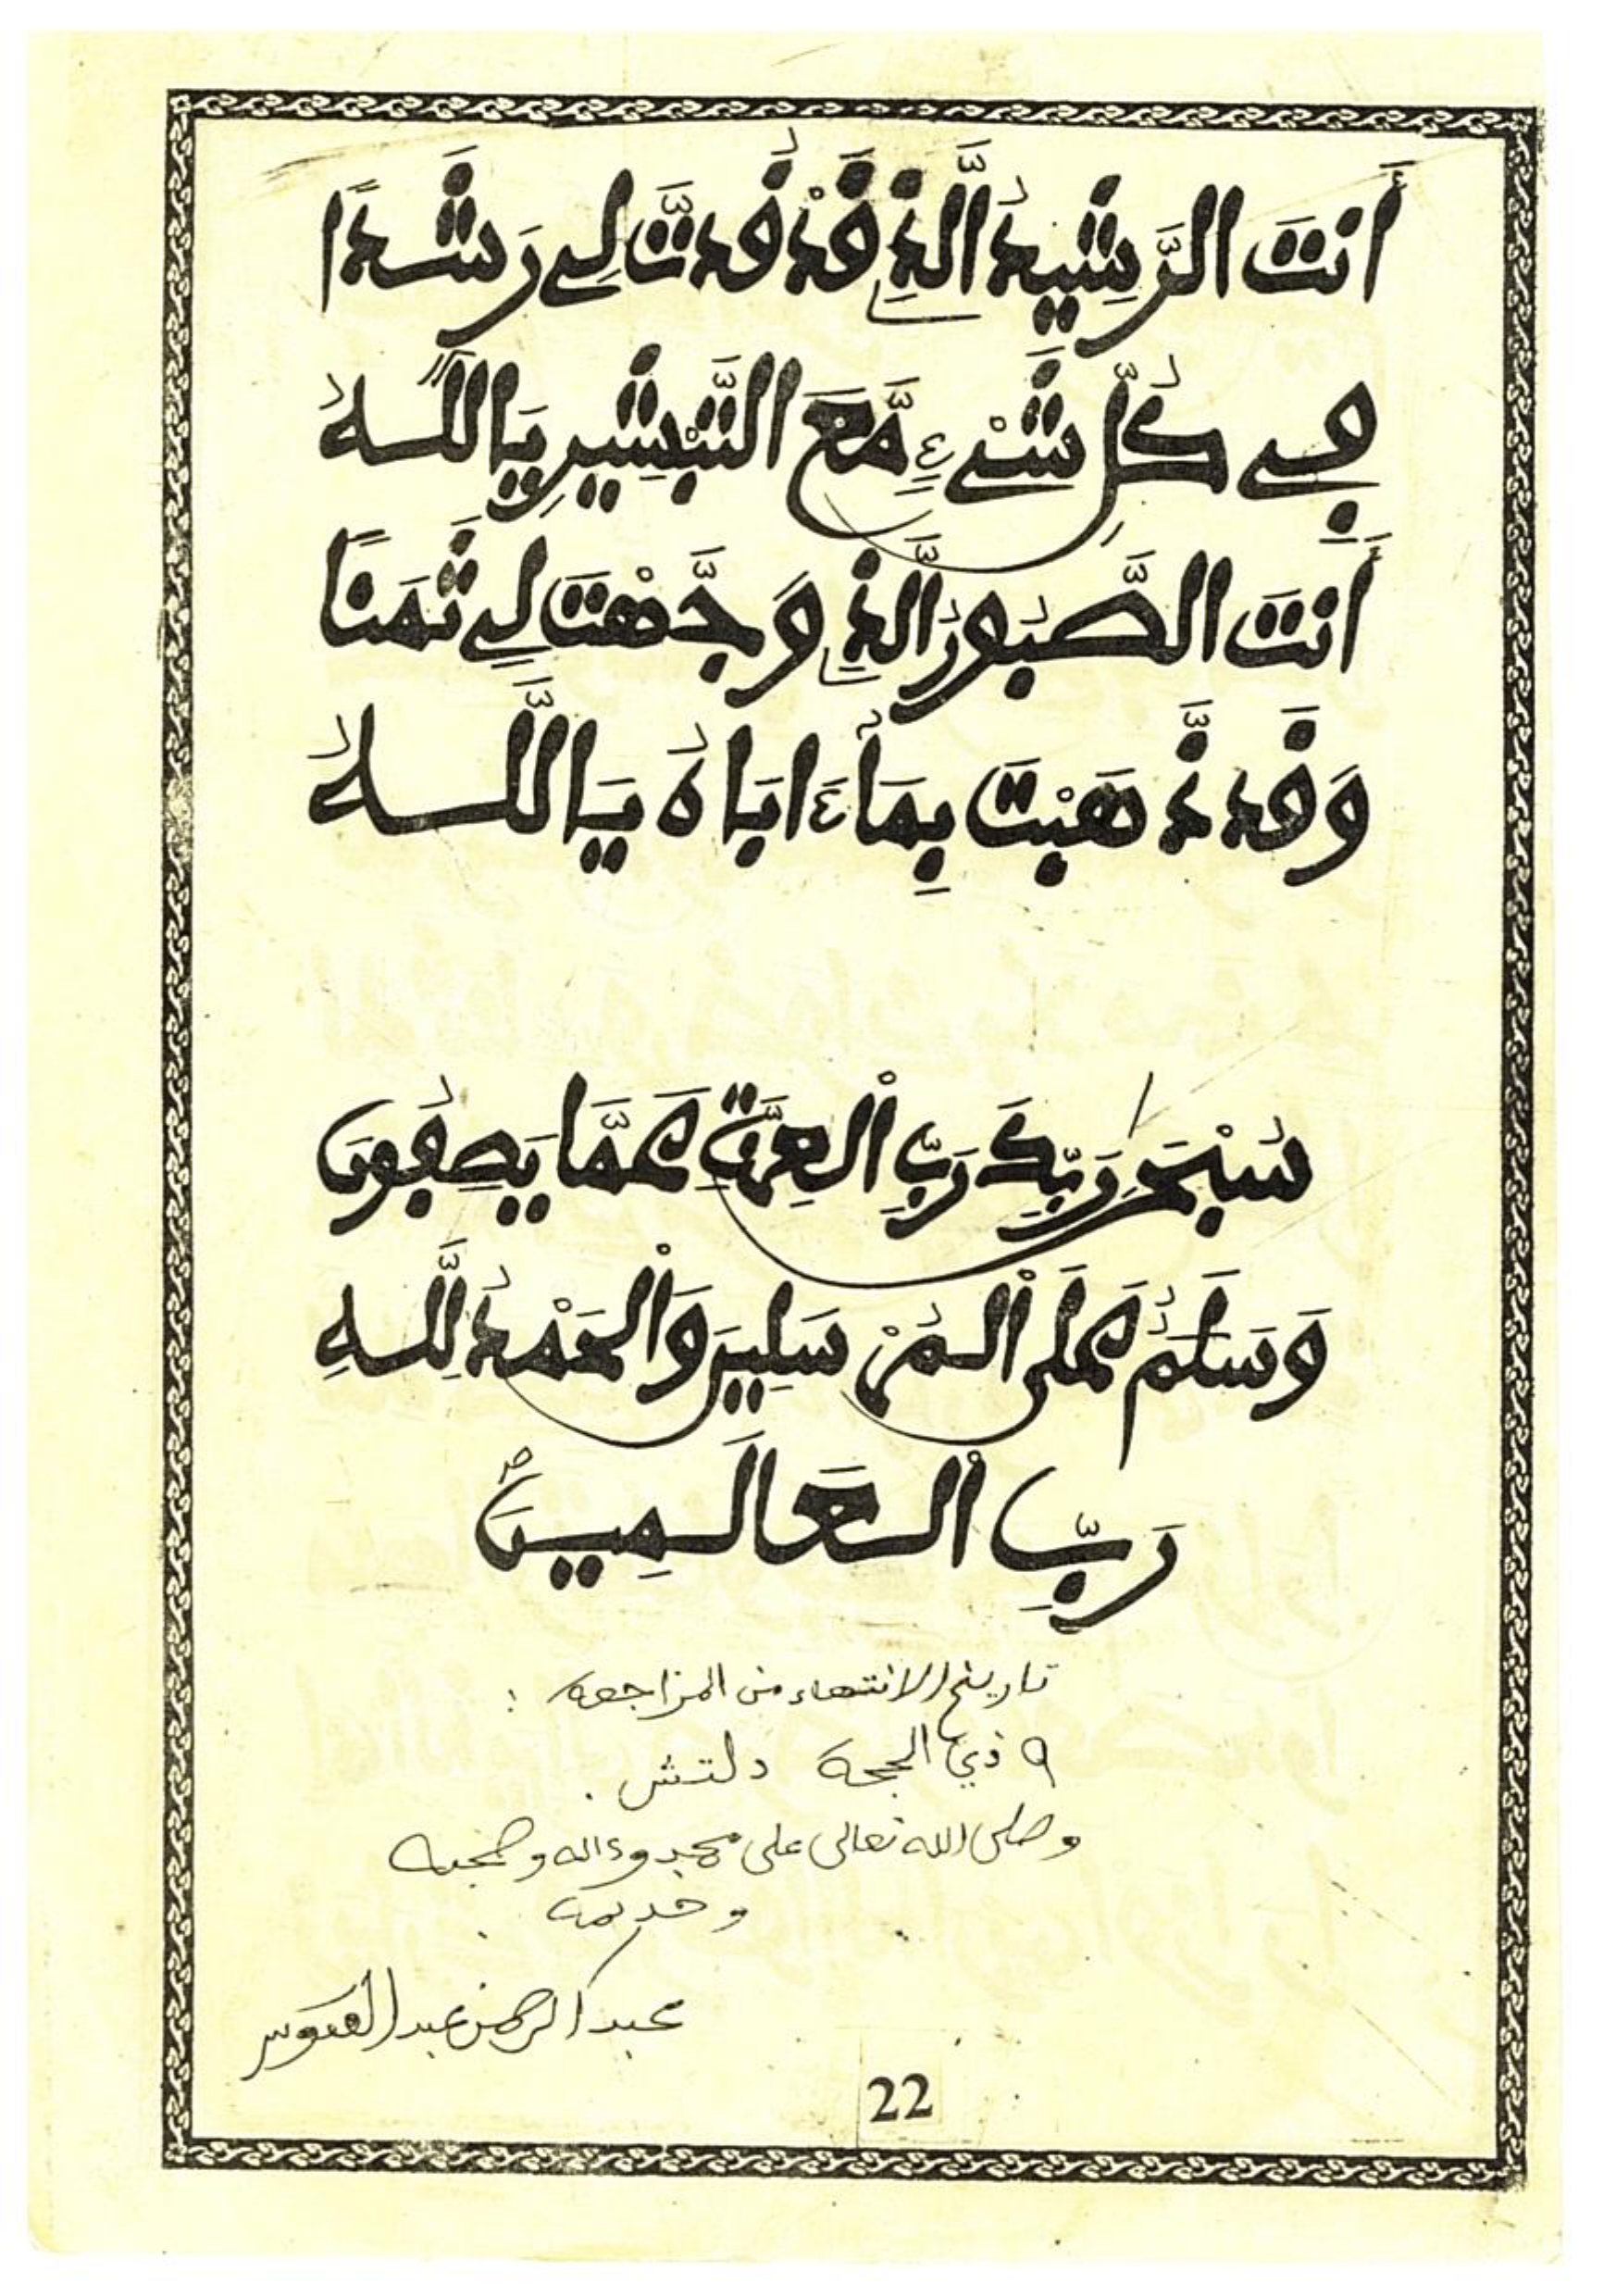 أَنتَ الرَّشِيدُ الَّذِے قَدْ قُدتَّ لِے رَشَدًا
فِے كُلِّ شَےْءٍ مَّعَ التَّبْشِيرِ يَا اللَّهُ
أَنتَ الصَّبُورُ الَّذِے وَجَّهْتَ لِے ثَمَنًا
وَقَد ذَّهَبْتَ بِمَا ءَابَاهُ يَا اللَّهُ
سُبْحَٰنَ رَبِّكَ رَبِّ الْعِزَّةِ عَمَّا يَصِفُونَ
وَسَلَٰمٌ عَلَى الْمُرْسَلِينَ وَالْحَمْدُ لِلَّهِ
رَبِّ الْعَالَمِينَ
تاريخ الانتهاء من المراجعة :
٩ ذي الحجة دلتش .
وصلى الله تعالى على محمد وءاله وصحبه
وخديمه
عبد الرحمن عبد القدوس
22